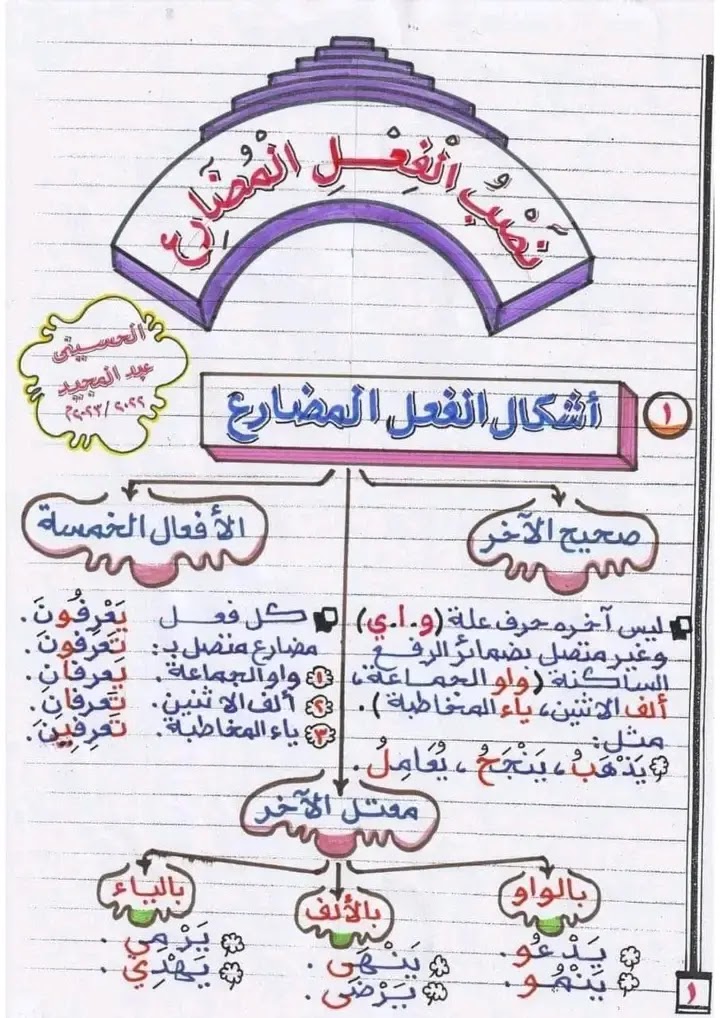 نَصْبُ الْفِعْلِ الْمُضَارِعِ
الحسيني
عبد المجيد
٢٠٢٢/٢٠٢٣م
١
أشكال الفعل المضارع
صحيح الآخر
ليس آخره حرف علة (و.ا.ي)
وغير متصل بضمائر الرفع
الساكنة (واو الجماعة،
ألف الاثنين، ياء المخاطبة).
مثل:
يَذْهَبُ، يَنْجَحُ، يُعَامِلُ.
الأفعال الخمسة
كل فعل
مضارع متصل بـ:
١ واو الجماعة.
٢ ألف الاثنين.
٣ ياء المخاطبة.
يَعْرِفُونَ.
تَعْرِفُونَ.
يَعْرِفَانِ.
تَعْرِفَانِ.
تَعْرِفِينَ.
معتل الآخر
بالواو
يَدْعُو.
يَنْمُو.
بالألف
يَنْهَى.
يَرْضَى.
بالياء
يَرْمِي.
يَهْدِي.
١